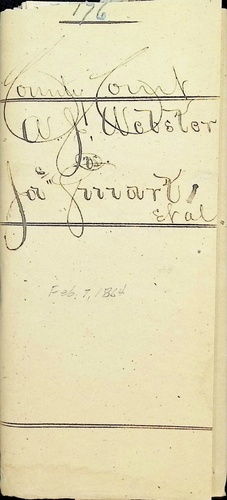 176
County Court
A. J. Webster
vs
Jas
et al
Feb. 7, 1864